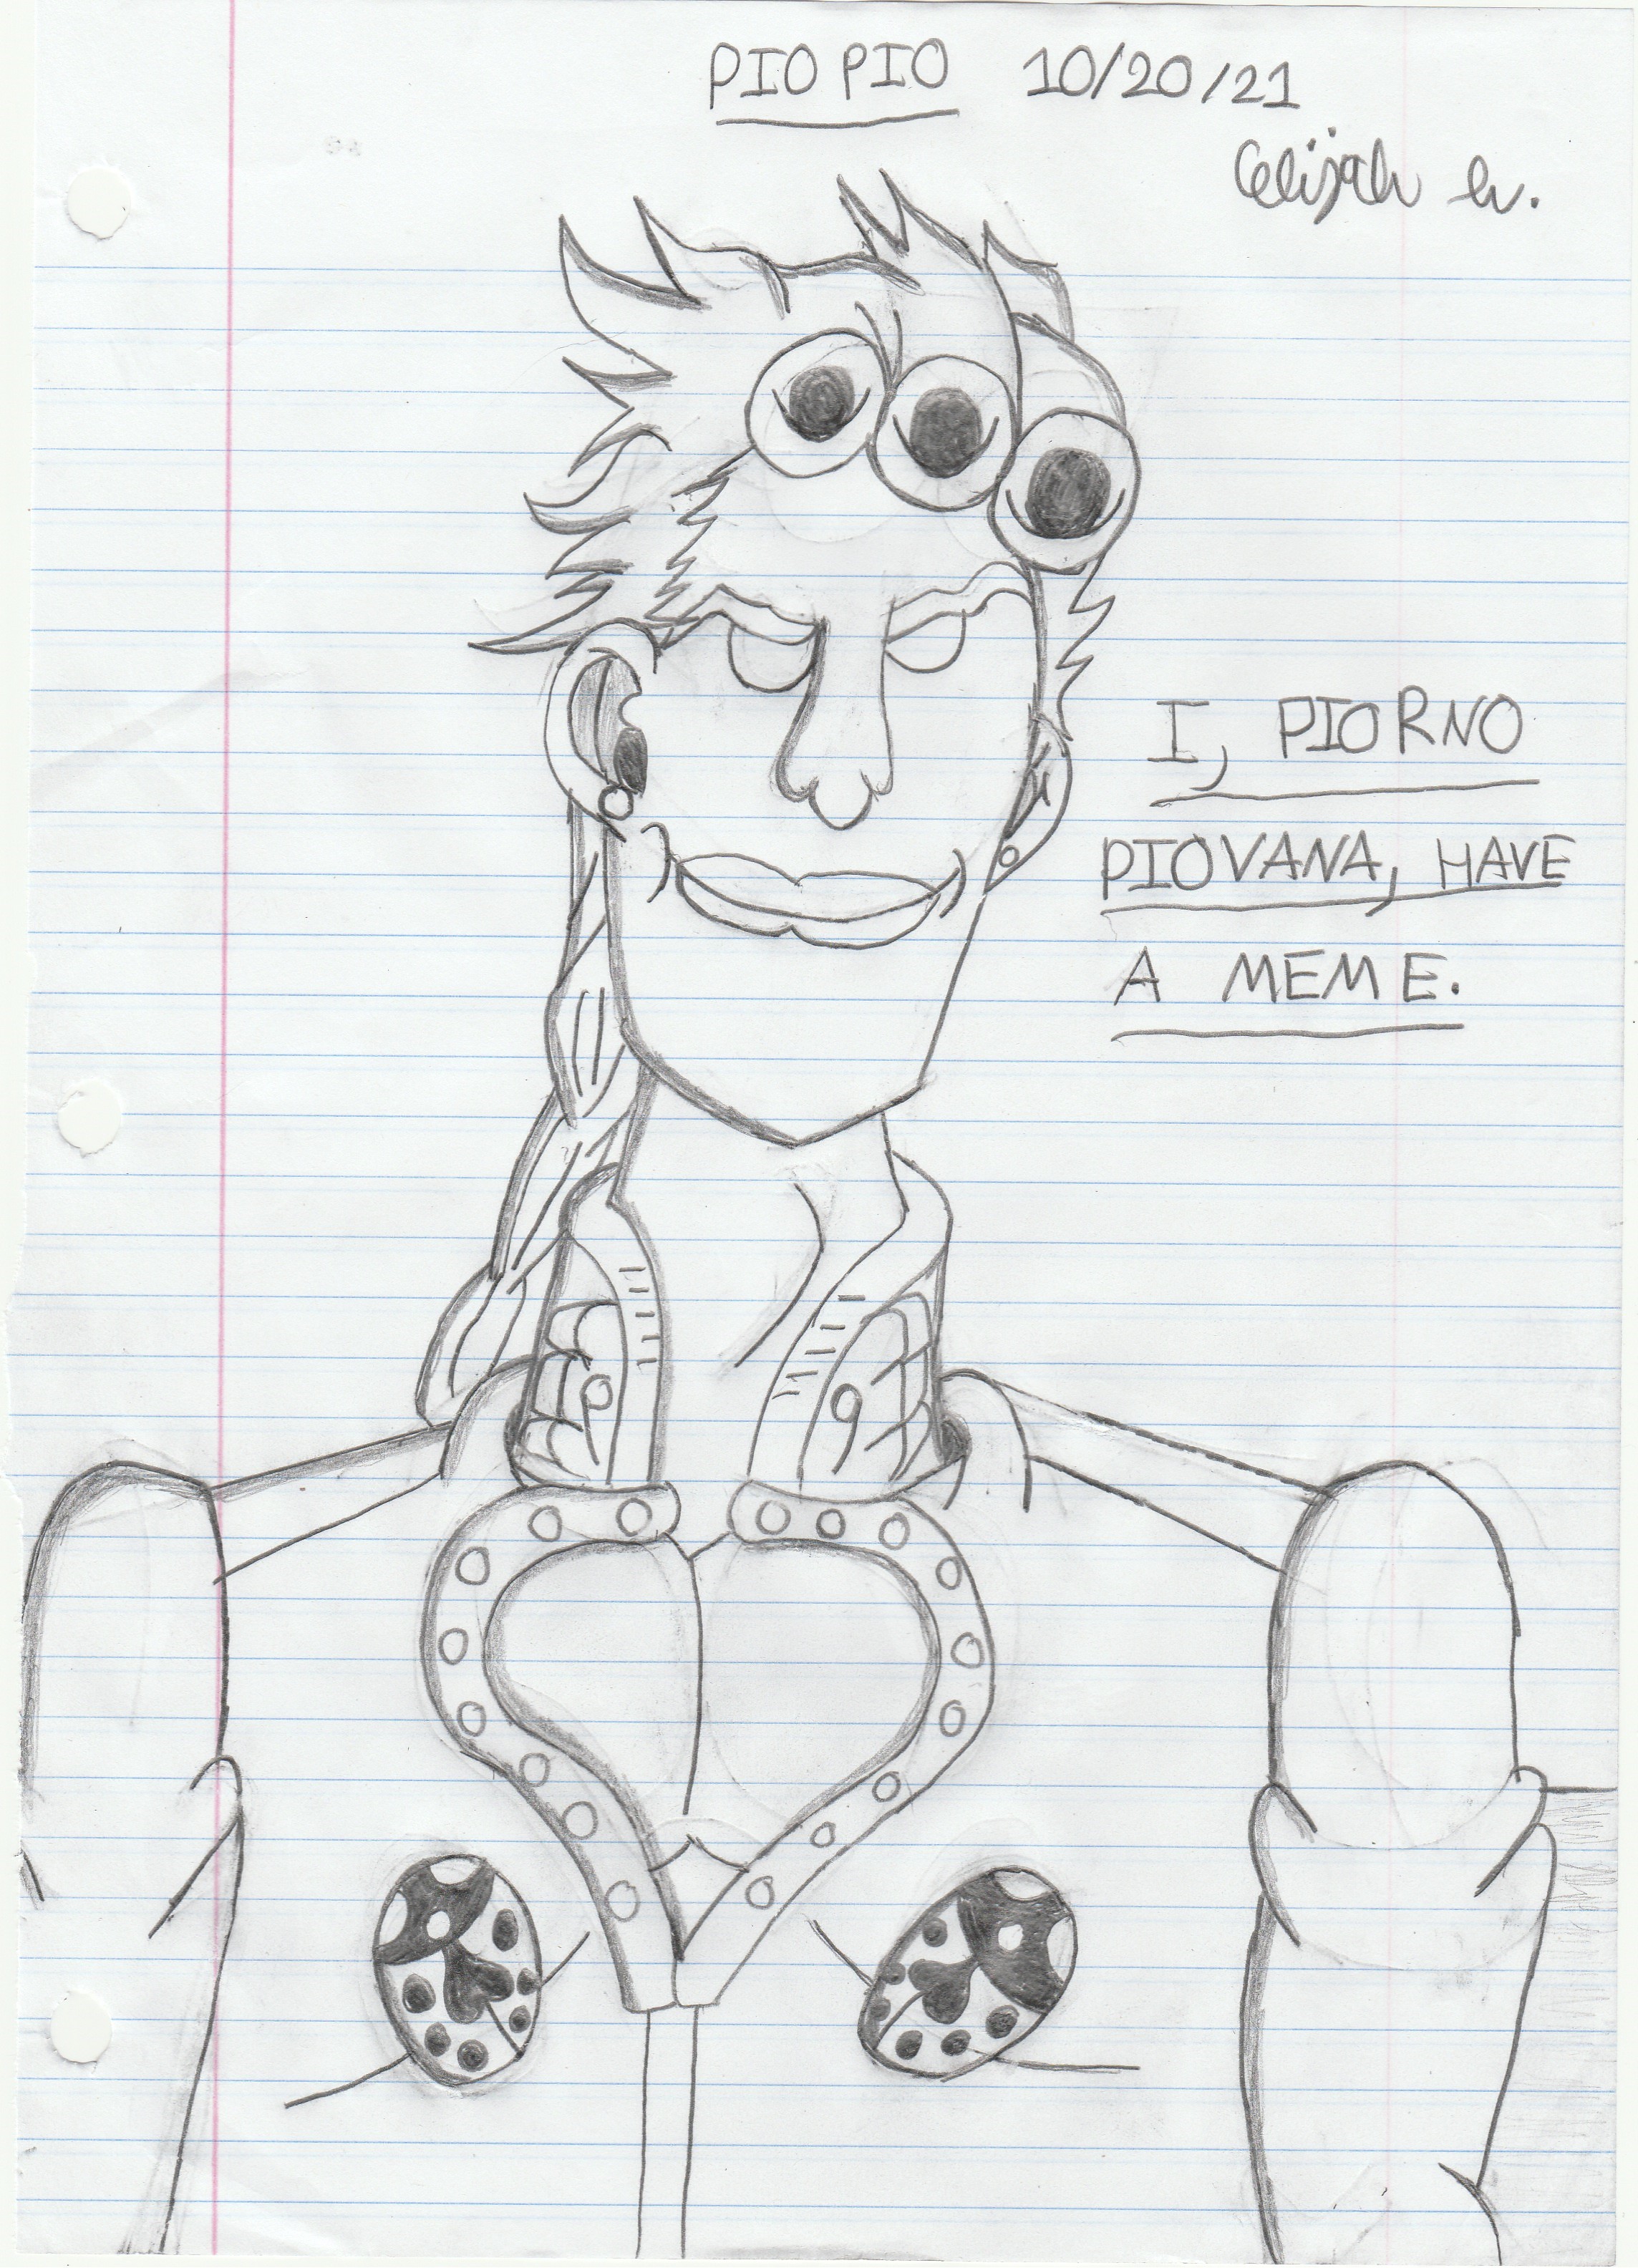 PIO PIO 10/20/21
Elijah h.
I, PIORNO
PIOVANA, HAVE
A MEME.